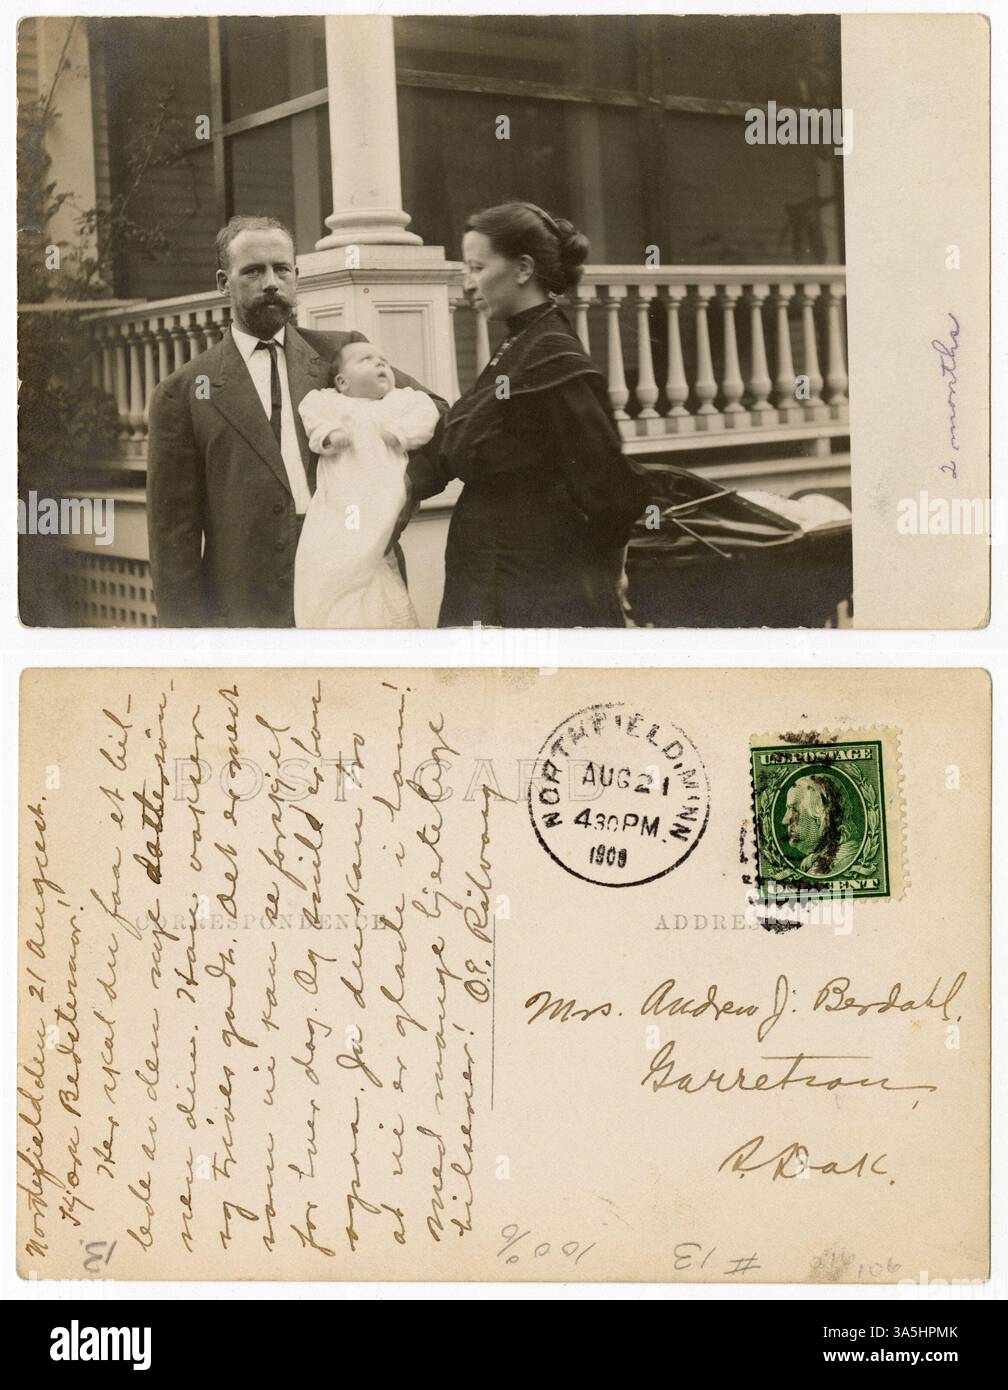 2 months
POST CARD
CORRESPONDENCE
ADDRESS
NORTHFIELD, MINN.
AUG 21
4 30 PM
1909
U.S. POSTAGE
CENT
Northfield den 21 August.
Kjære Bedstemor!
Her skal du faa et bil-
lede av den nye dattersøn-
nen din. Han vokser
og trives godt. Det er mest
som vi kan se forskjel
for hver dag. Og snild er han
ogsaa. Ja du kan tro
at vi er glade i ham!
Med mange hjertelige
hilsener!
O. E. Rölvaag
Mrs. Andrew J. Berdahl.
Garretson,
S. Dak.
13.
100%
# 13
106
alamy
Image ID: A5HPMK
www.alamy.com